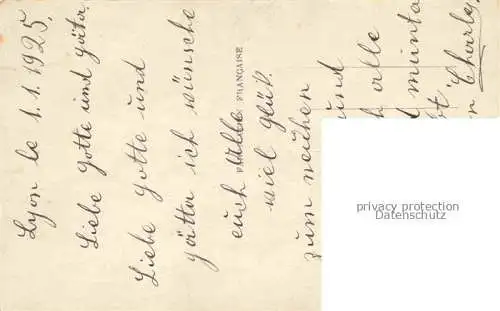 Lyon le 1.1.1925.
Liebe Gotte und Götti
Liebe Gotte und
götta ich wünsche
euch alle
viel glük
zum neuhen
und
alle
munta
Charley
FRANÇAISE
privacy protection
Datenschutz